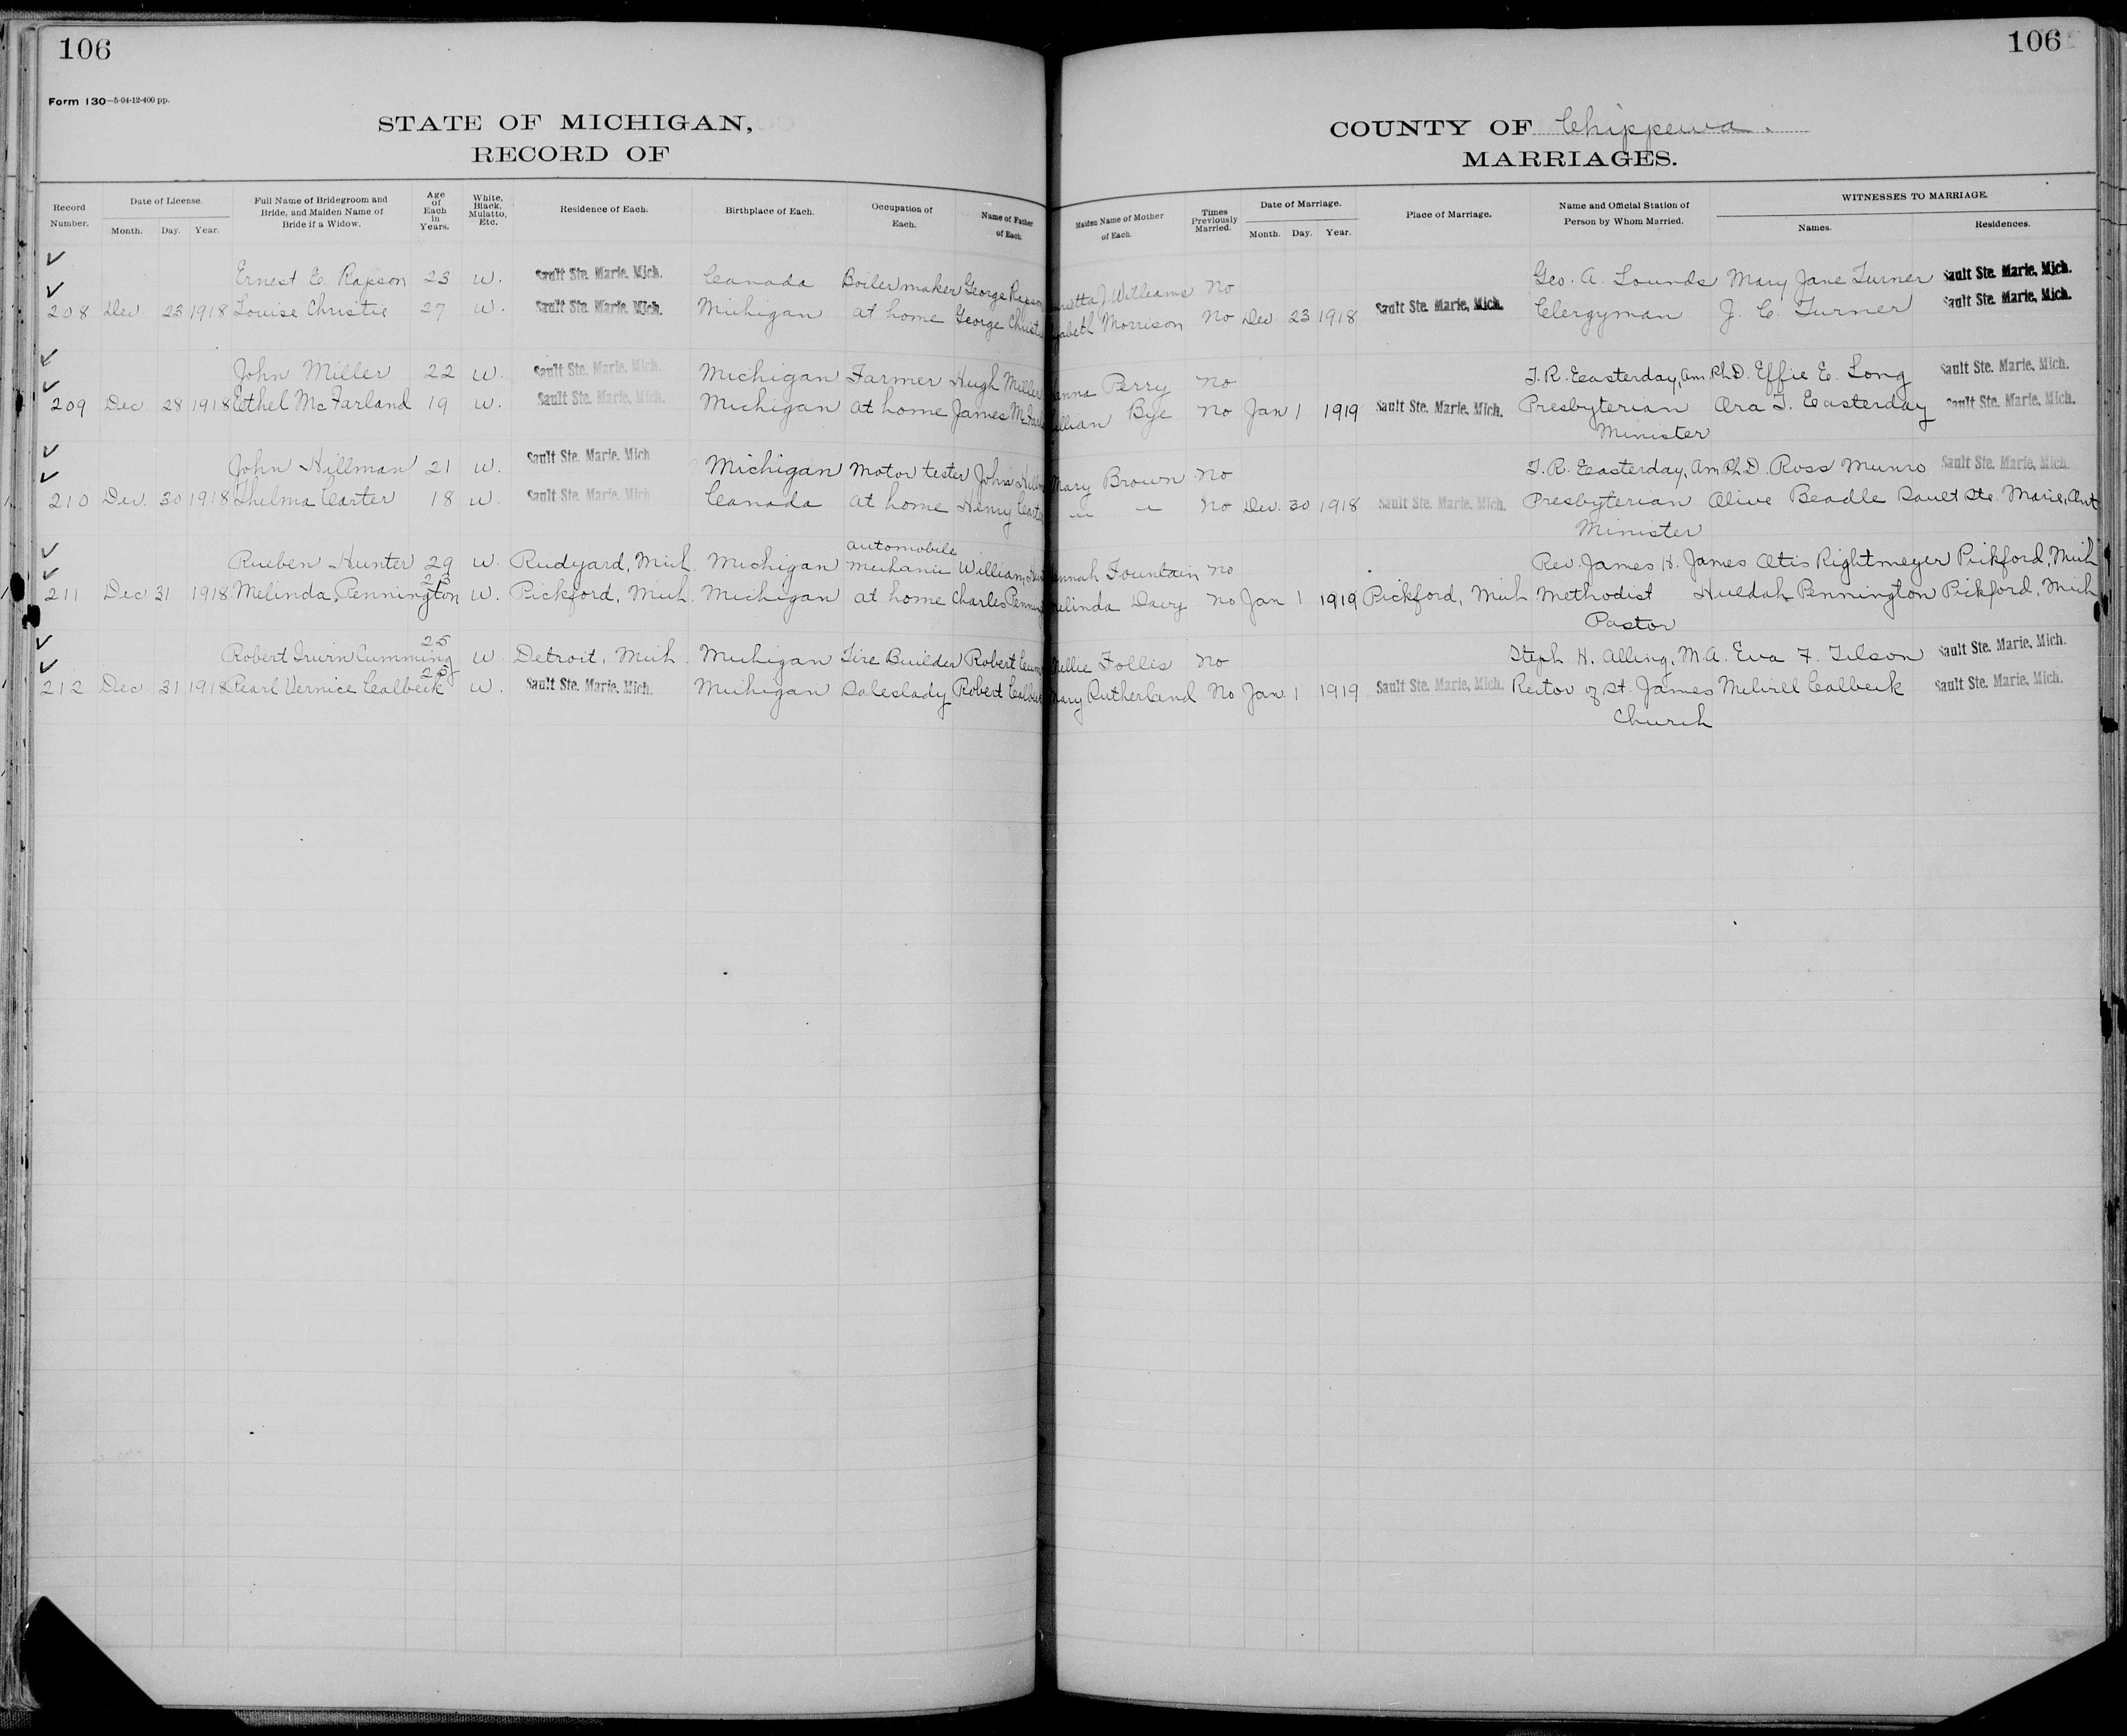 106
Form 130—5-04-12-400 pp.
STATE OF MICHIGAN,
RECORD OF
Record Number.
Date of License.
Month. Day. Year.
Full Name of Bridegroom and Bride, and Maiden Name of Bride if a Widow.
Age of Each in Years.
White, Black, Mulatto, Etc.
Residence of Each.
Birthplace of Each.
Occupation of Each.
Name of Father of Each.
106
COUNTY OF Chippewa.
MARRIAGES.
Maiden Name of Mother of Each.
Times Previously Married.
Date of Marriage.
Month. Day. Year.
Place of Marriage.
Name and Official Station of Person by Whom Married.
WITNESSES TO MARRIAGE.
Names. Residences.
Ernest E. Rapson 23 W. Sault Ste. Marie, Mich. Canada Boilermaker George Rapson J Williams No Geo. A. Lounds Mary Jane Turner Sault Ste. Marie, Mich.
208 Dec 23 1918 Louise Christie 27 W. Sault Ste. Marie, Mich. Michigan at home George Morrison No Dec 23 1918 Sault Ste. Marie, Mich. Clergyman J. C. Turner Sault Ste. Marie, Mich.
John Miller 22 W. Sault Ste. Marie, Mich. Michigan Farmer Hugh Miller Perry No T. R. Easterday, Am. Ph.D. Effie E. Long Sault Ste. Marie, Mich.
209 Dec 28 1918 Ethel McFarland 19 W. Sault Ste. Marie, Mich. Michigan at home James Bye No Jan 1 1919 Sault Ste. Marie, Mich. Presbyterian Ora T. Easterday Sault Ste. Marie, Mich.
Minister
John Hillman 21 W. Sault Ste. Marie, Mich. Michigan Motor tester John Mary Brown No T. R. Easterday, Am. Ph.D. Ross Munro Sault Ste. Marie, Mich.
210 Dec. 30 1918 Thelma Carter 18 W. Sault Ste. Marie, Mich. Canada at home Henry " " No Dec. 30 1918 Sault Ste. Marie, Mich. Presbyterian Olive Beadle Sault Ste. Marie, Ont
Minister
automobile
Rueben Hunter 29 W. Rudyard, Mich. Michigan mechanic William Fountain No Rev. James H. James Otis Rightmeyer Pickford, Mich
211 Dec 31 1918 Melinda Pennington 23 W. Pickford, Mich. Michigan at home Charles Melinda Davy No Jan 1 1919 Pickford, Mich Methodist Huldah Pennington Pickford, Mich
Pastor
Robert Irwin Cumming 25 W Detroit, Mich. Michigan Tire Builder Robert Nellie Follis No Steph H. Alling, M.A. Eva F. Tilson Sault Ste. Marie, Mich.
212 Dec 31 1918 Pearl Vernice Calbeck 25 W. Sault Ste. Marie, Mich. Michigan Saleslady Robert Mary Rutherland No Jan 1 1919 Sault Ste. Marie, Mich. Rector of St. James Melvill Calbeck Sault Ste. Marie, Mich.
Church